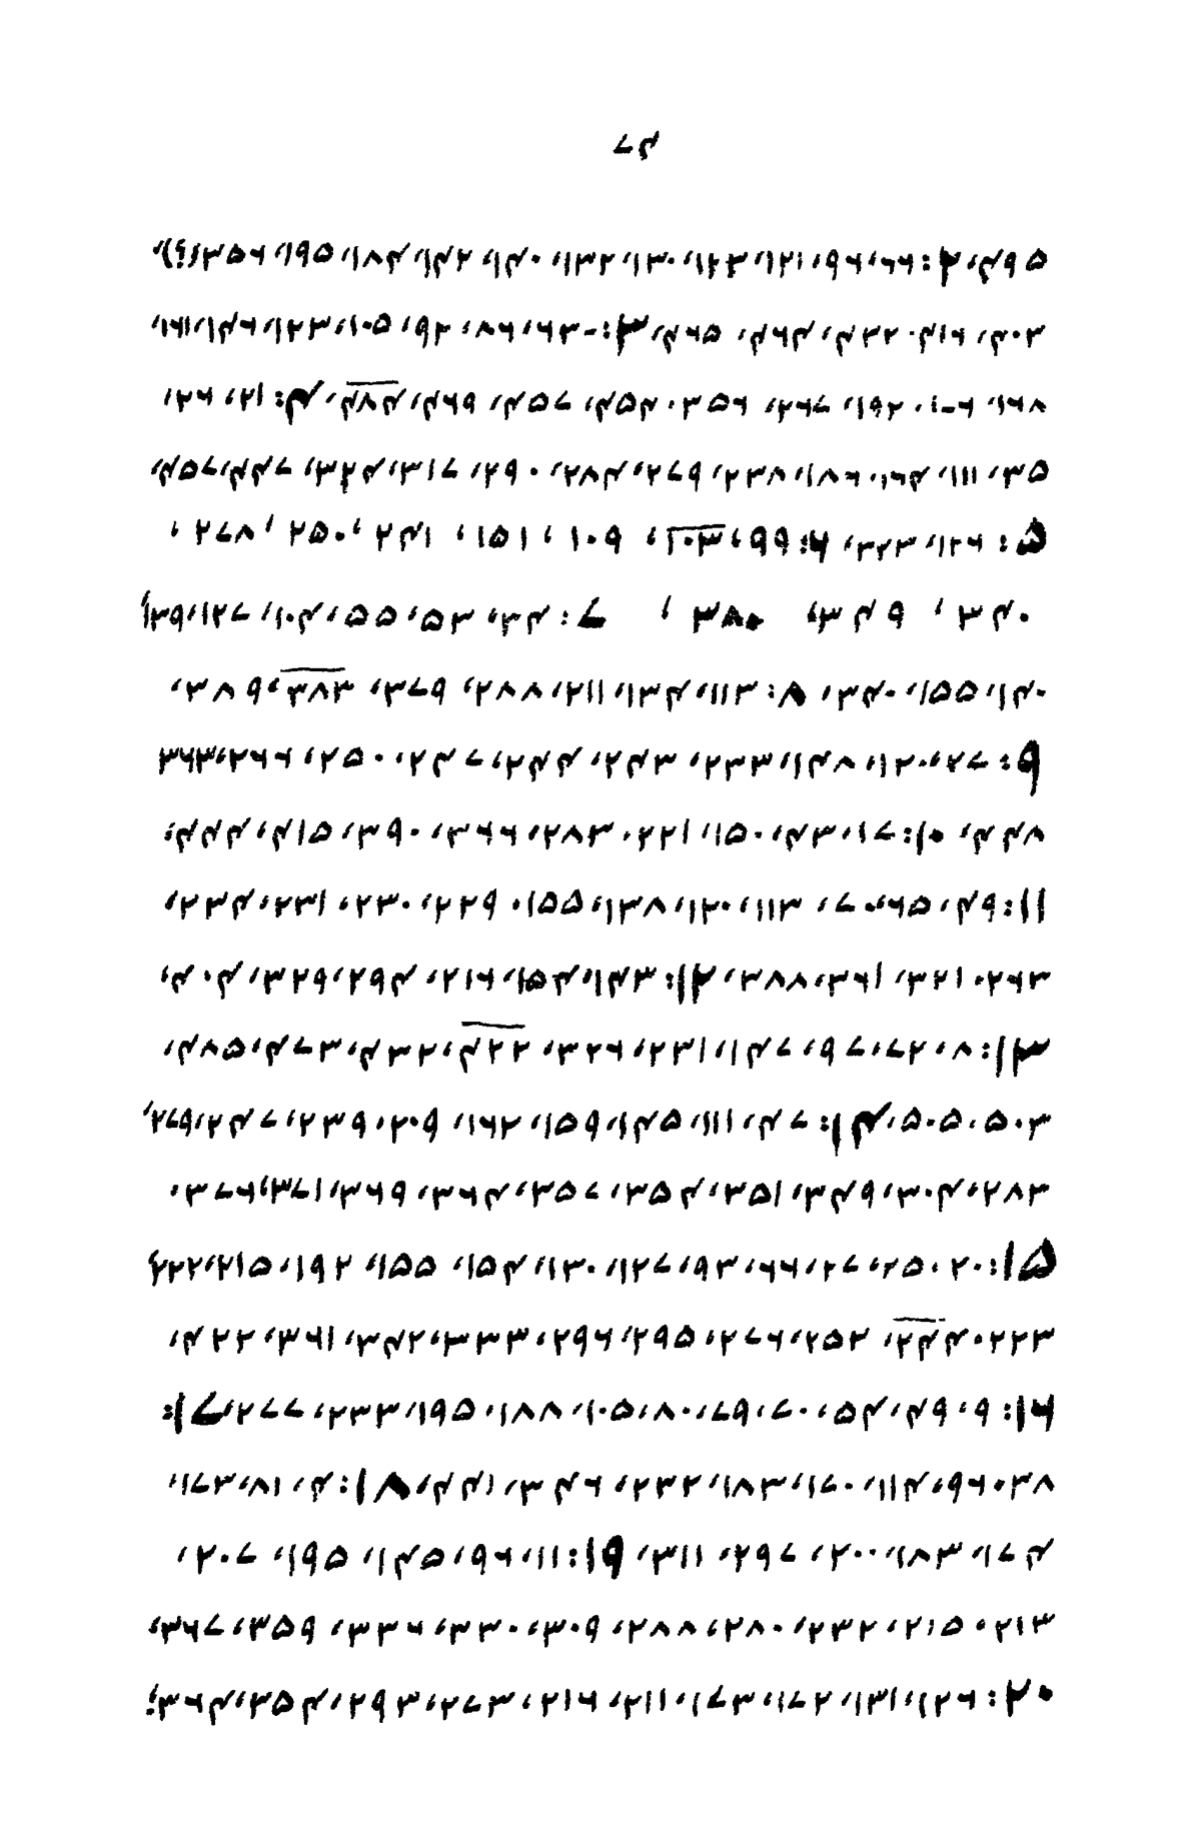 ۷۴
۴۹۵، ۲: ۶۶، ۹۶، ۱۲۱، ۱۲۳، ۱۳۰، ۱۳۲، ۱۴۰، ۱۴۲، ۱۸۴، ۱۹۵، ۳۵۶(؟)،
۴۰۳، ۴۱۶، ۴۲۲، ۴۶۴، ۴۶۵، ۳:- ۶۳، ۷۶، ۹۲، ۱۰۵، ۱۲۳، ۱۴۶، ۱۶۱،
۱۶۸، ۱-۶، ۱۹۲، ۲۶۷، ۳۵۶، ۴۵۴، ۴۵۷، ۴۶۹، ۴۸۴، ۴: ۲۱، ۲۶،
۳۵، ۱۱۱، ۱۶۴، ۱۸۶، ۲۳۸، ۲۷۹، ۲۸۴، ۲۹۰، ۳۱۷، ۳۲۴، ۴۴۷، ۴۵۷،
۵: ۱۲۶، ۳۲۳، ۶: ۹۹، ۱۰۳، ۱۰۹، ۱۵۱، ۲۴۱، ۲۵۰، ۲۷۸،
۳۴۰، ۳۴۹، ۳۸۰، ۷: ۳۴، ۵۳، ۵۵، ۱۰۴، ۱۲۷، ۱۳۹،
۱۴۰، ۱۵۵، ۳۴۰، ۸: ۱۱۳، ۱۳۴، ۲۱۱، ۲۸۸، ۳۷۹، ۳۸۳، ۳۸۹،
۹: ۲۷، ۱۲۰، ۱۴۸، ۲۳۳، ۲۴۳، ۲۴۴، ۲۴۷، ۲۵۰، ۲۶۶، ۳۶۳
۴۴۸، ۱۰: ۱۷، ۴۳، ۱۵۰، ۲۲۱، ۲۸۳، ۳۶۶، ۳۹۰، ۴۱۵، ۴۴۴،
۱۱: ۴۹، ۶۵، ۷۰، ۱۱۳، ۱۲۰، ۱۳۸، ۱۵۵، ۲۲۹، ۲۳۰، ۲۳۱، ۲۳۴،
۲۶۳، ۳۲۱، ۳۶۱، ۳۸۸، ۱۲: ۱۴۳، ۱۵۴، ۲۱۶، ۲۹۴، ۳۲۹، ۴۰۴،
۱۳: ۸، ۲۷، ۷۹، ۱۴۷، ۲۳۱، ۳۲۶، ۴۲۲، ۴۳۲، ۴۷۳، ۴۸۵،
۵۰۳، ۵۰۵، ۱۴: ۴۷، ۱۱۱، ۱۴۵، ۱۵۹، ۱۶۲، ۲۰۹، ۲۳۹، ۲۴۷، ۲۷۹،
۲۸۳، ۳۰۴، ۳۴۹، ۳۵۱، ۳۵۴، ۳۵۷، ۳۶۴، ۳۶۹، ۳۷۱، ۳۷۶،
۱۵: ۲۰، ۲۵، ۲۷، ۶۶، ۹۳، ۱۲۷، ۱۳۰، ۱۵۴، ۱۵۵، ۱۹۲، ۲۱۵، ۲۲۲،
۲۲۳، ۲۴۴، ۲۵۲، ۲۷۶، ۲۹۵، ۲۹۶، ۳۳۳، ۳۴۲، ۳۶۱، ۴۲۲،
۱۶: ۹، ۴۹، ۵۴، ۷۰، ۷۹، ۸۰، ۱۰۵، ۱۸۸، ۱۹۵، ۲۳۳، ۲۷۷، ۱۷:
۳۸، ۹۶، ۱۱۴، ۱۷۰، ۱۸۳، ۲۳۲، ۳۴۶، ۱۸: ۴، ۸۱، ۱۷۳،
۱۷۴، ۱۸۳، ۲۰۰، ۲۹۷، ۳۱۱، ۱۹: ۱۱، ۹۶، ۱۴۵، ۱۹۵، ۲۰۷،
۲۱۳، ۲۱۵، ۲۳۲، ۲۸۰، ۲۸۸، ۳۰۹، ۳۳۰، ۳۳۶، ۳۵۹، ۳۶۷،
۲۰: ۱۲۶، ۱۳۱، ۱۷۲، ۱۷۳، ۲۱۱، ۲۱۶، ۲۷۳، ۲۹۳، ۳۵۴، ۳۶۴؛